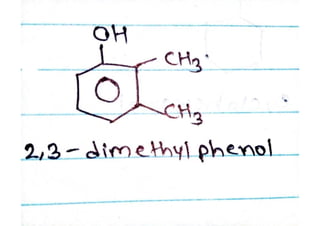 OH
CH3
CH3
2,3-dimethyl phenol